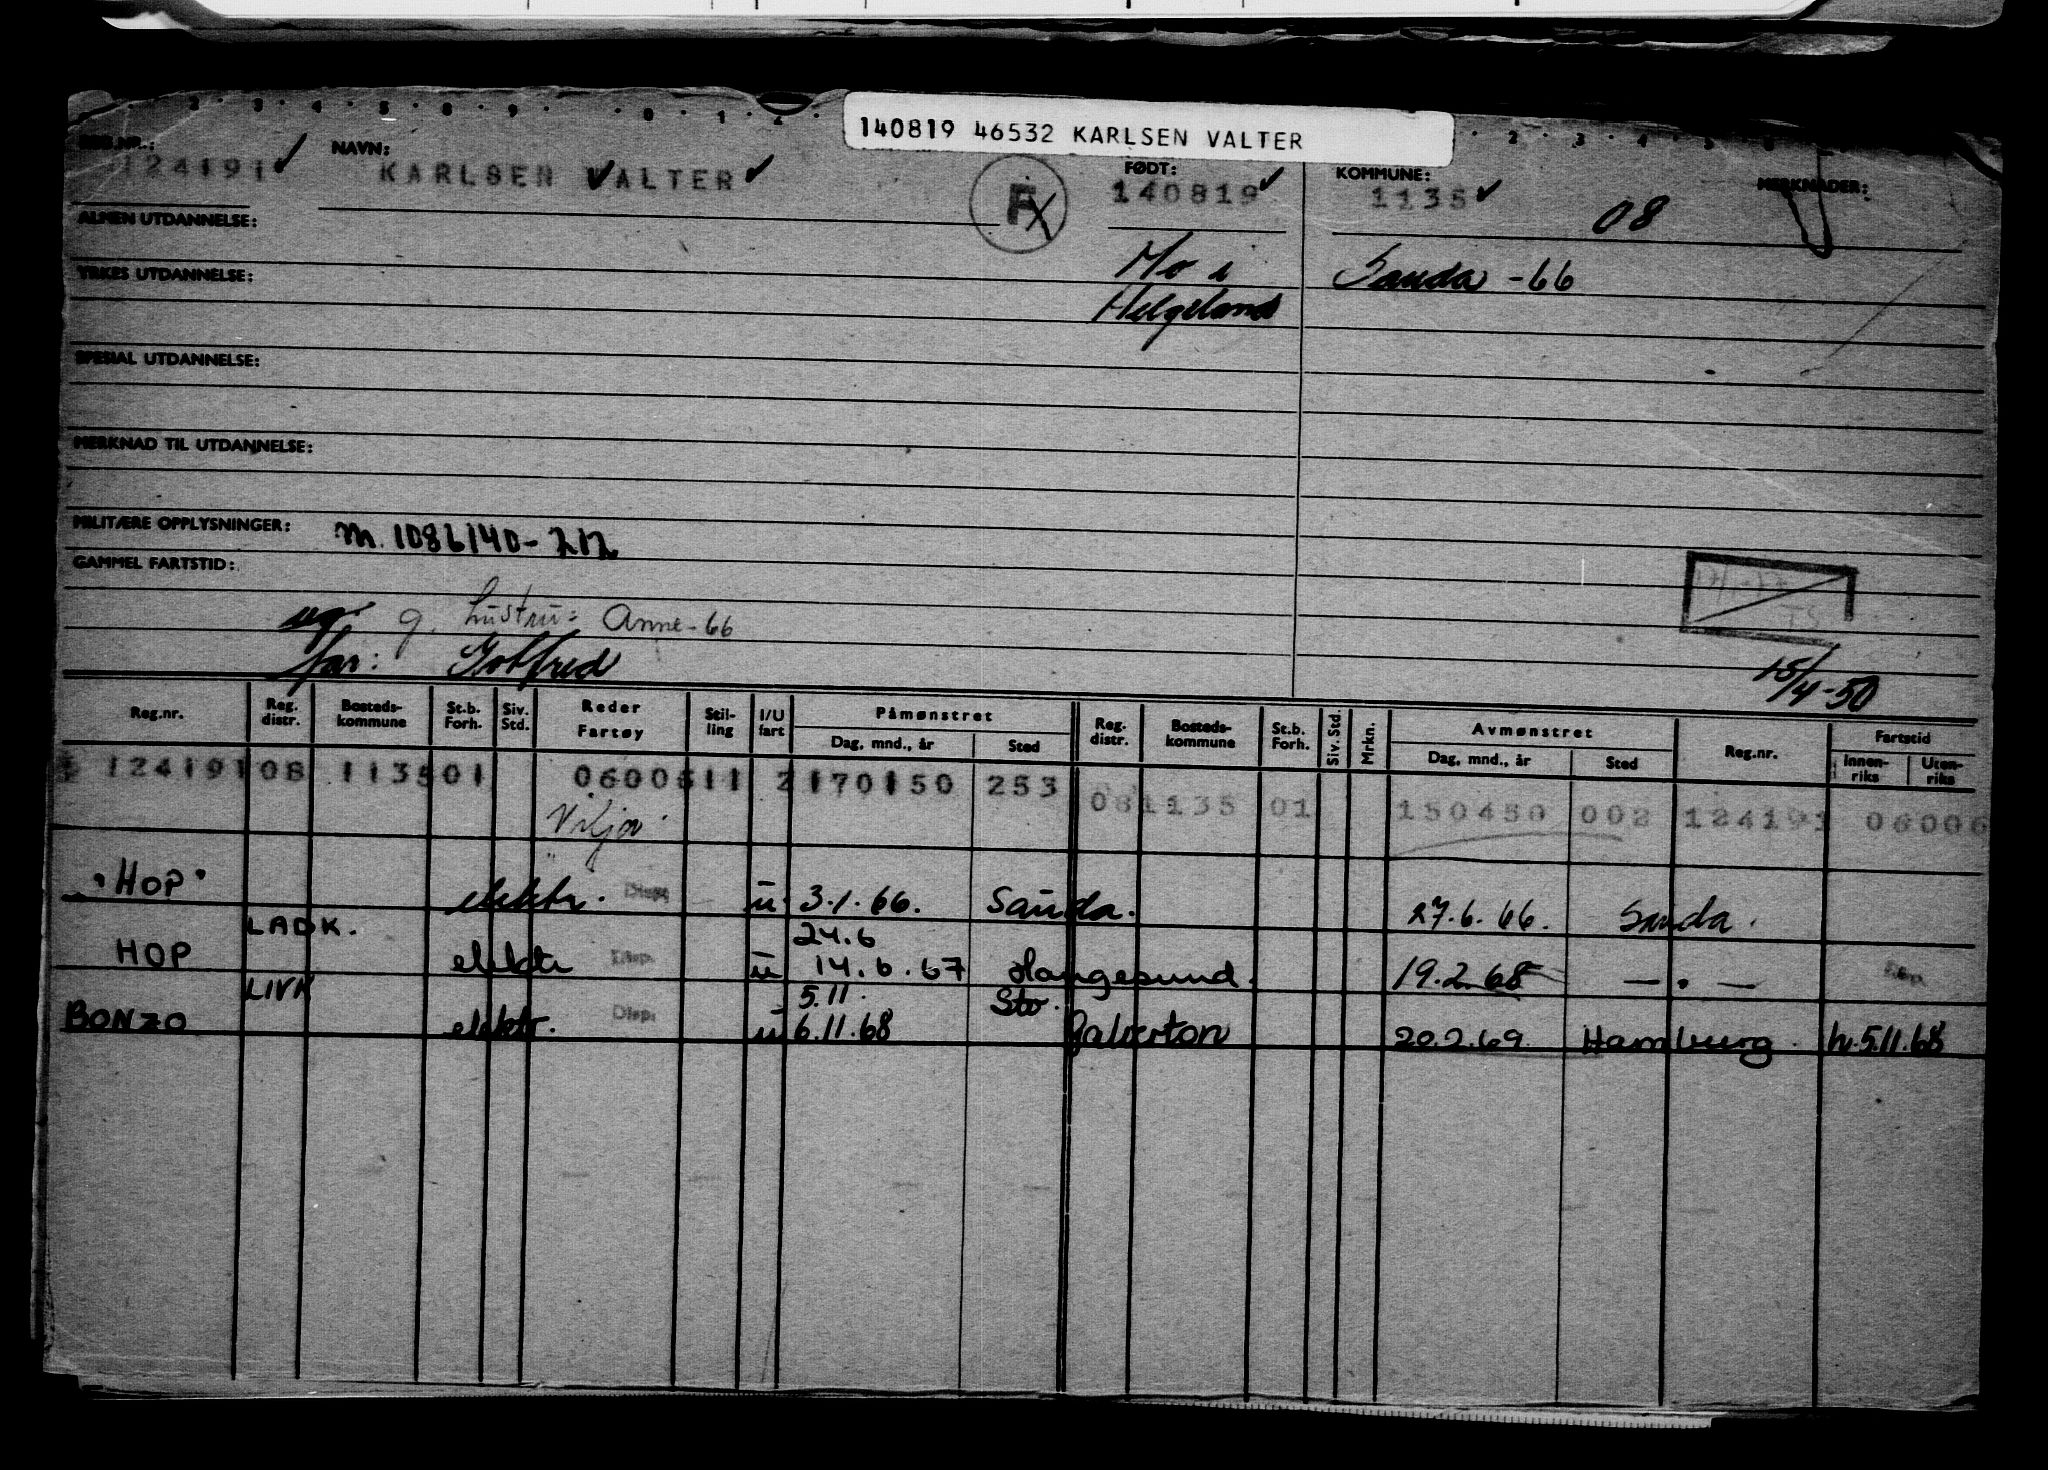 140819 46532 KARLSEN VALTER
REG.NR.: NAVN: FØDT: KOMMUNE: MERKNADER:
124191 KARLSEN VALTER F 140819 1135 08
ALMEN UTDANNELSE:
Mo i Sauda -66
YRKES UTDANNELSE:
Helgeland
SPESIAL UTDANNELSE:
MERKNAD TIL UTDANNELSE:
MILITÆRE OPPLYSNINGER: m. 1086140-212
GAMMEL FARTSTID:
ug. g. hustru: Anne -66
far: Gotfred 15/4-50
Reg.nr. Reg. distr. Bosteds-kommune St.b. Forh. Siv. Std. Reder Fartøy Stil-ling I/U fart Påmønstret Dag, mnd., år Sted Reg. distr. Bosteds-kommune St.b. Forh. Siv. Std. Mrkn. Avmønstret Dag, mnd., år Sted Reg.nr. Fartstid Innen-riks Uten-riks
124191 08 1135 01 0600611 2 170150 253 08 1135 01 150450 002 124191 06006
Vilja
"HOP" elektr. Disp. u 3.1.66. Sauda. 27.6.66. Sauda.
LADK. 24.6
HOP elektr Disp. u 14.6.67 Haugesund. 19.2.68 — " —
LIVK 5.11. Sto.
BONZO elektr. Disp. u 6.11.68 Galverton 20.2.69. Hamburg. h.5.11.68